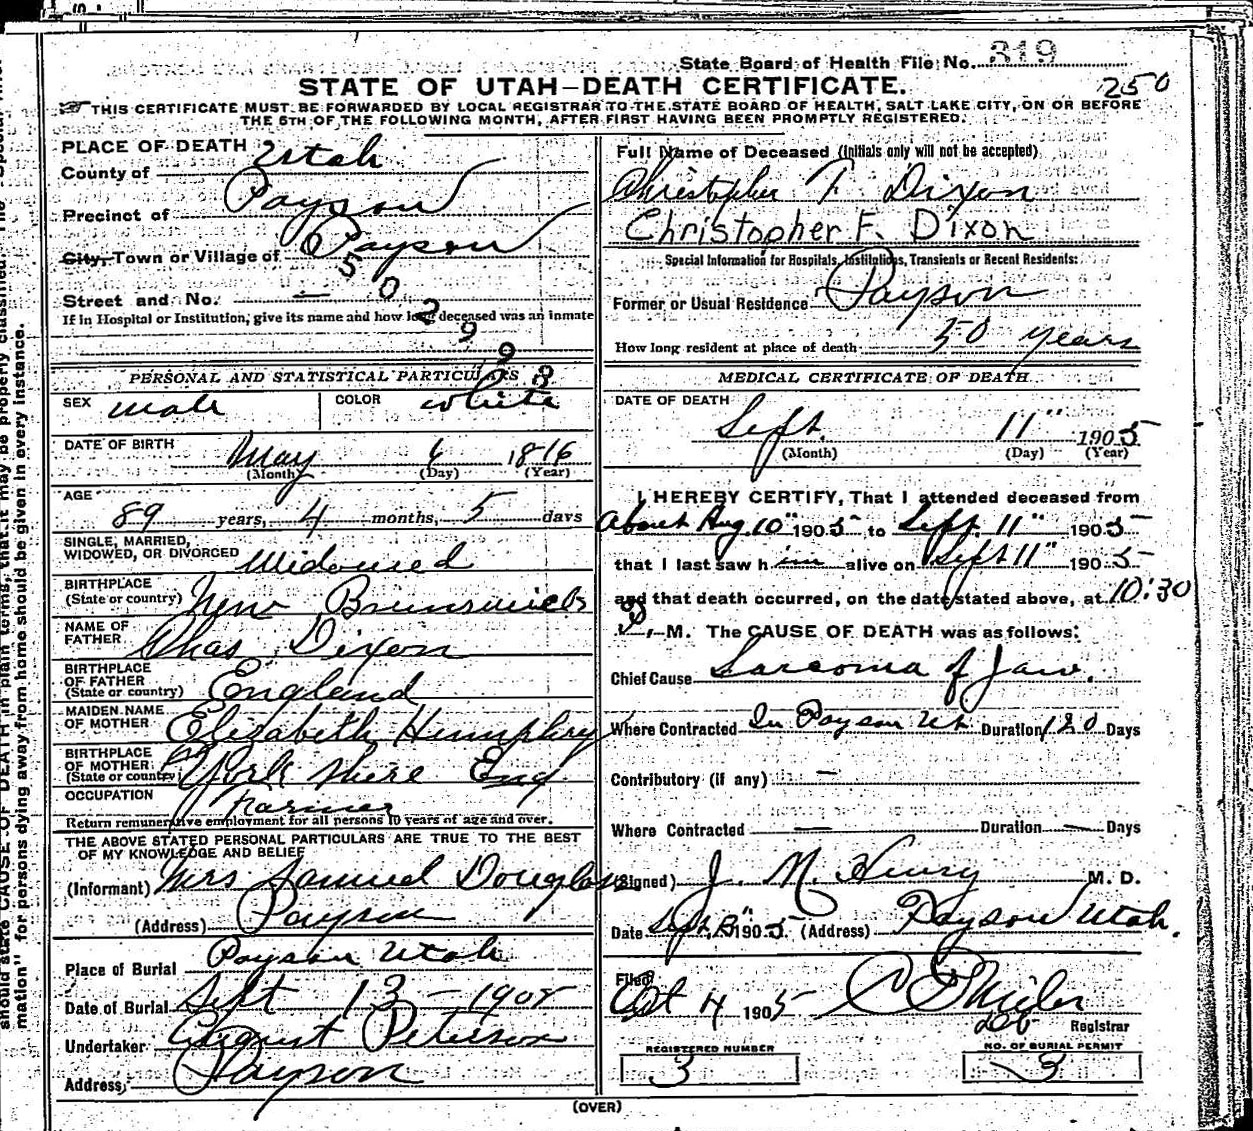 State Board of Health File No. 319
STATE OF UTAH—DEATH CERTIFICATE.
250
THIS CERTIFICATE MUST BE FORWARDED BY LOCAL REGISTRAR TO THE STATE BOARD OF HEALTH, SALT LAKE CITY, ON OR BEFORE
THE 5TH OF THE FOLLOWING MONTH, AFTER FIRST HAVING BEEN PROMPTLY REGISTERED.
PLACE OF DEATH
County of Utah
Precinct of Payson
City, Town or Village of Payson
Street and No. —
If in Hospital or Institution, give its name and how long deceased was an inmate
502998
PERSONAL AND STATISTICAL PARTICULARS
SEX male COLOR white
DATE OF BIRTH May 6 1816
(Month) (Day) (Year)
AGE 89 years, 4 months, 5 days
SINGLE, MARRIED,
WIDOWED, OR DIVORCED Widowed
BIRTHPLACE
(State or country) New Brunswick
NAME OF
FATHER Chas Dixon
BIRTHPLACE
OF FATHER
(State or country) England
MAIDEN NAME
OF MOTHER Elizabeth Humphrey
BIRTHPLACE
OF MOTHER
(State or country) York shire Eng
OCCUPATION Farmer
Return remunerative employment for all persons 10 years of age and over.
THE ABOVE STATED PERSONAL PARTICULARS ARE TRUE TO THE BEST
OF MY KNOWLEDGE AND BELIEF
(Informant) Mrs Samuel Douglass
(Address) Payson
Place of Burial Payson Utah
Date of Burial Sept 13 - 1905
Undertaker August Peterson
Address, Payson
Full Name of Deceased (Initials only will not be accepted)
Christopher F Dixon
Christopher F. Dixon
Special Information for Hospitals, Institutions, Transients or Recent Residents:
Former or Usual Residence Payson
How long resident at place of death 50 years
MEDICAL CERTIFICATE OF DEATH
DATE OF DEATH
Sept. 11" 1905
(Month) (Day) (Year)
I HEREBY CERTIFY, That I attended deceased from
about Aug. 10" 1905 to Sept. 11" 1905
that I last saw him alive on Sept 11" 1905
and that death occurred, on the date stated above, at 10:30
P. M. The CAUSE OF DEATH was as follows:
Chief Cause Sarcoma of Jaw.
Where Contracted In Payson Ut. Duration 120 Days
Contributory (if any) —
Where Contracted — Duration — Days
(Signed) J. M. Henry M. D.
Date Sept. 1905. (Address) Payson Utah.
Filed
Oct 4 1905
Registrar
REGISTERED NUMBER
3
NO. OF BURIAL PERMIT
3
(OVER)
should state CAUSE OF DEATH in plain terms, that it may be properly classified. The "Special Infor-
mation" for persons dying away from home should be given in every instance.